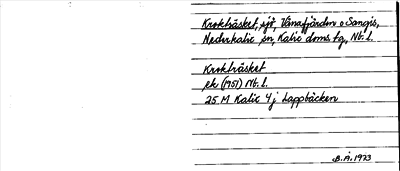 Krokträsket, sjö, Vånafjärden o Sangis,
Nederkalix sn, Kalix doms. tg., Nb. l.
Krokträsket
ek (1957) Nb. l.
25 M Kalix 4 j Lappbäcken
B.Å. 1973